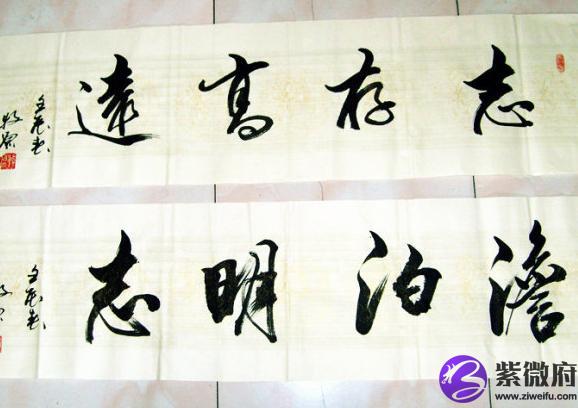 志存高遠
澹泊明志
紫微府
www.ziweifu.com